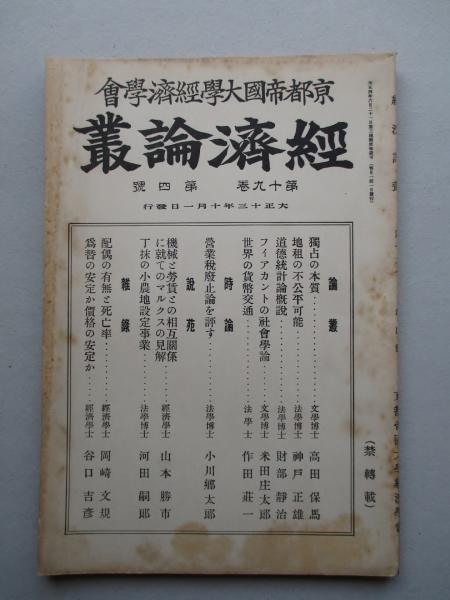 京都帝國大學經濟學會
經濟論叢
第十九卷 第四號
大正十三年十月一日發行
論叢
獨占の本質……文學博士 高田保馬
地租の不公平可能……法學博士 神戸正雄
道德統計論概說……法學博士 財部靜治
フィアカントの社會學論……文學博士 米田庄太郎
世界の貨幣交通……法學士 作田莊一
時論
營業稅廢止論を評す……法學博士 小川鄉太郎
說苑
機械と勞賃との相互關係
に就てのマルクスの見解……經濟學士 山本勝市
丁抹の小農地設定事業……法學博士 河田嗣郎
雜錄
配偶の有無と死亡率……經濟學士 岡崎文規
爲替の安定か價格の安定か……經濟學士 谷口吉彥
(禁轉載)